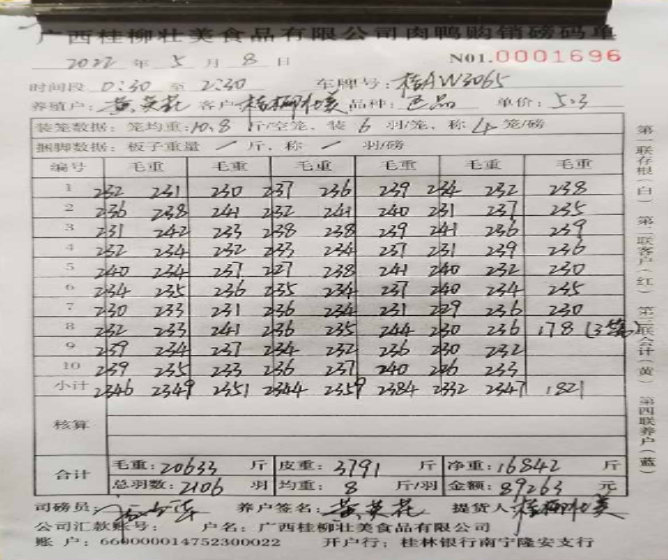 广西桂柳壮美食品有限公司肉鸭购销磅码单
2022年5月8日 N01.0001696
时间段 0:30 至 2:30 车牌号:桂AW3065
养殖户:黄英花 客户:桂柳壮美 品种: 单价:5.3
装笼数据:笼均重:10.8 斤/空笼、装 6 羽/笼、称 4 笼/磅
捆脚数据:板子重量 / 斤、称 / 羽/磅
编号 毛重 毛重 毛重 毛重 毛重 毛重
1 232 231 230 237 236 239 234 232 238
2 236 238 241 232 241 240 231 237 235
3 231 242 233 238 238 239 241 236 239
4 232 234 232 233 234 237 231 239 236
5 240 234 237 227 238 241 240 232 230
6 234 235 236 235 234 237 240 234 235
7 230 233 231 236 234 231 229 236 230
8 232 233 241 236 235 244 230 236 178(3笼)
9 239 234 237 234 232 236 230 232
10 239 235 233 236 237 240 226 233
小计 2346 2349 2351 2344 2359 2384 2332 2347 1821
核算
合计 毛重:20633 斤 皮重:3791 斤 净重:16842 斤
总羽数:2106 羽 均重:8 斤/羽 金额:89263 元
司磅员: 养户签名:黄英花 提货人:桂柳壮美
公司汇款账号: 户名:广西桂柳壮美食品有限公司
账户:660000014752300022 开户行:桂林银行南宁隆安支行
第一联存根(白) 第二联客户(红) 第三联会计(黄) 第四联养户(蓝)